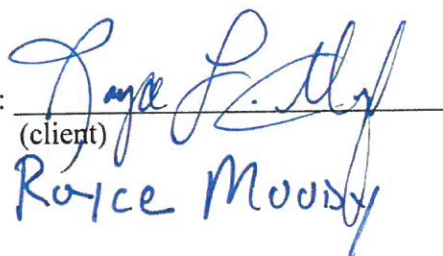 : Royce L. Moody
(client)
Royce Moody